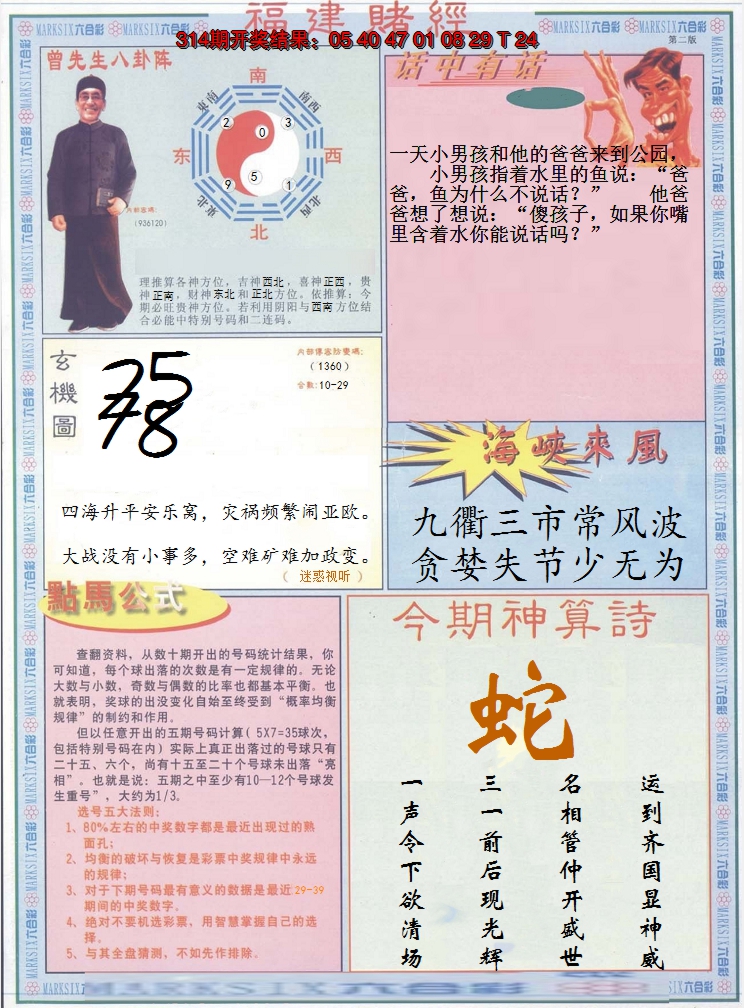 福建賭經
314期开奖结果：05 40 47 01 08 29 T 24
第二版
MARKSIX六合彩
曾先生八卦阵
南
東南
南西
东
西
東北
北西
北
2
0
3
9
5
1
(936120)
理推算各神方位，吉神西北，喜神正西，贵
神正南，财神东北和正北方位。依推算：今
期必旺贵神方位。若利用阴阳与西南方位结
合必能中特别号码和二连码。
话中有话
一天小男孩和他的爸爸来到公园，
小男孩指着水里的鱼说：“爸
爸，鱼为什么不说话？” 他爸
爸想了想说：“傻孩子，如果你嘴
里含着水你能说话吗？”
玄機圖
75
78
（1360）
合数:10-29
四海升平安乐窝，灾祸频繁闹亚欧。
大战没有小事多，空难矿难加政变。
（ 迷惑视听 ）
海峡來風
九衢三市常风波
贪婪失节少无为
點馬公式
查翻资料，从数十期开出的号码统计结果，你
可知道，每个球出落的次数是有一定规律的。无论
大数与小数，奇数与偶数的比率也都基本平衡。也
就表明，奖球的出没变化自始至终受到“概率均衡
规律”的制约和作用。
但以任意开出的五期号码计算( 5X7=35球次，
包括特别号码在内) 实际上真正出落过的号球只有
二十五、六个，尚有十五至二十个号球未出落“亮
相”。也就是说：五期之中至少有10—12个号球发
生重号”，大约为1/3。
选号五大法则：
1、80%左右的中奖数字都是最近出现过的熟
面孔；
2、均衡的破坏与恢复是彩票中奖规律中永远
的规律；
3、对于下期号码最有意义的数据是最近29-39
期间的中奖数字。
4、绝对不要机选彩票，用智慧掌握自己的选
择。
5、与其全盘猜测，不如先作排除。
今期神算詩
蛇
运到齐国显神威
名相管仲开盛世
三一前后现光辉
一声令下欲清场